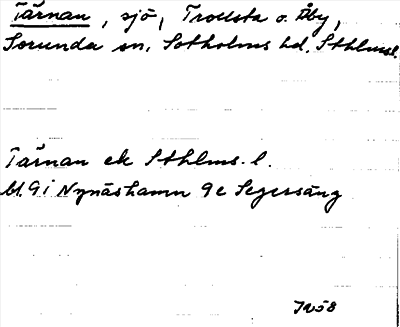 Tärnan, sjö, Trollsta o. Åby,
Sorunda sn, Sotholms hd, Sthlmsl.
Tärnan ek Sthlms. l.
bl. 9 i Nynäshamn 9 e Segersäng